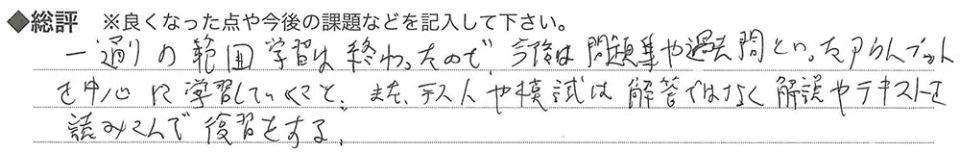 ◆総評 ※良くなった点や今後の課題などを記入して下さい。
一通りの範囲学習は終わったので、今後は問題集や過去問といったアウトプット
を中心に学習していくこと。また、テストや模試は解答ではなく解説やテキストを
読みこんで復習をする。